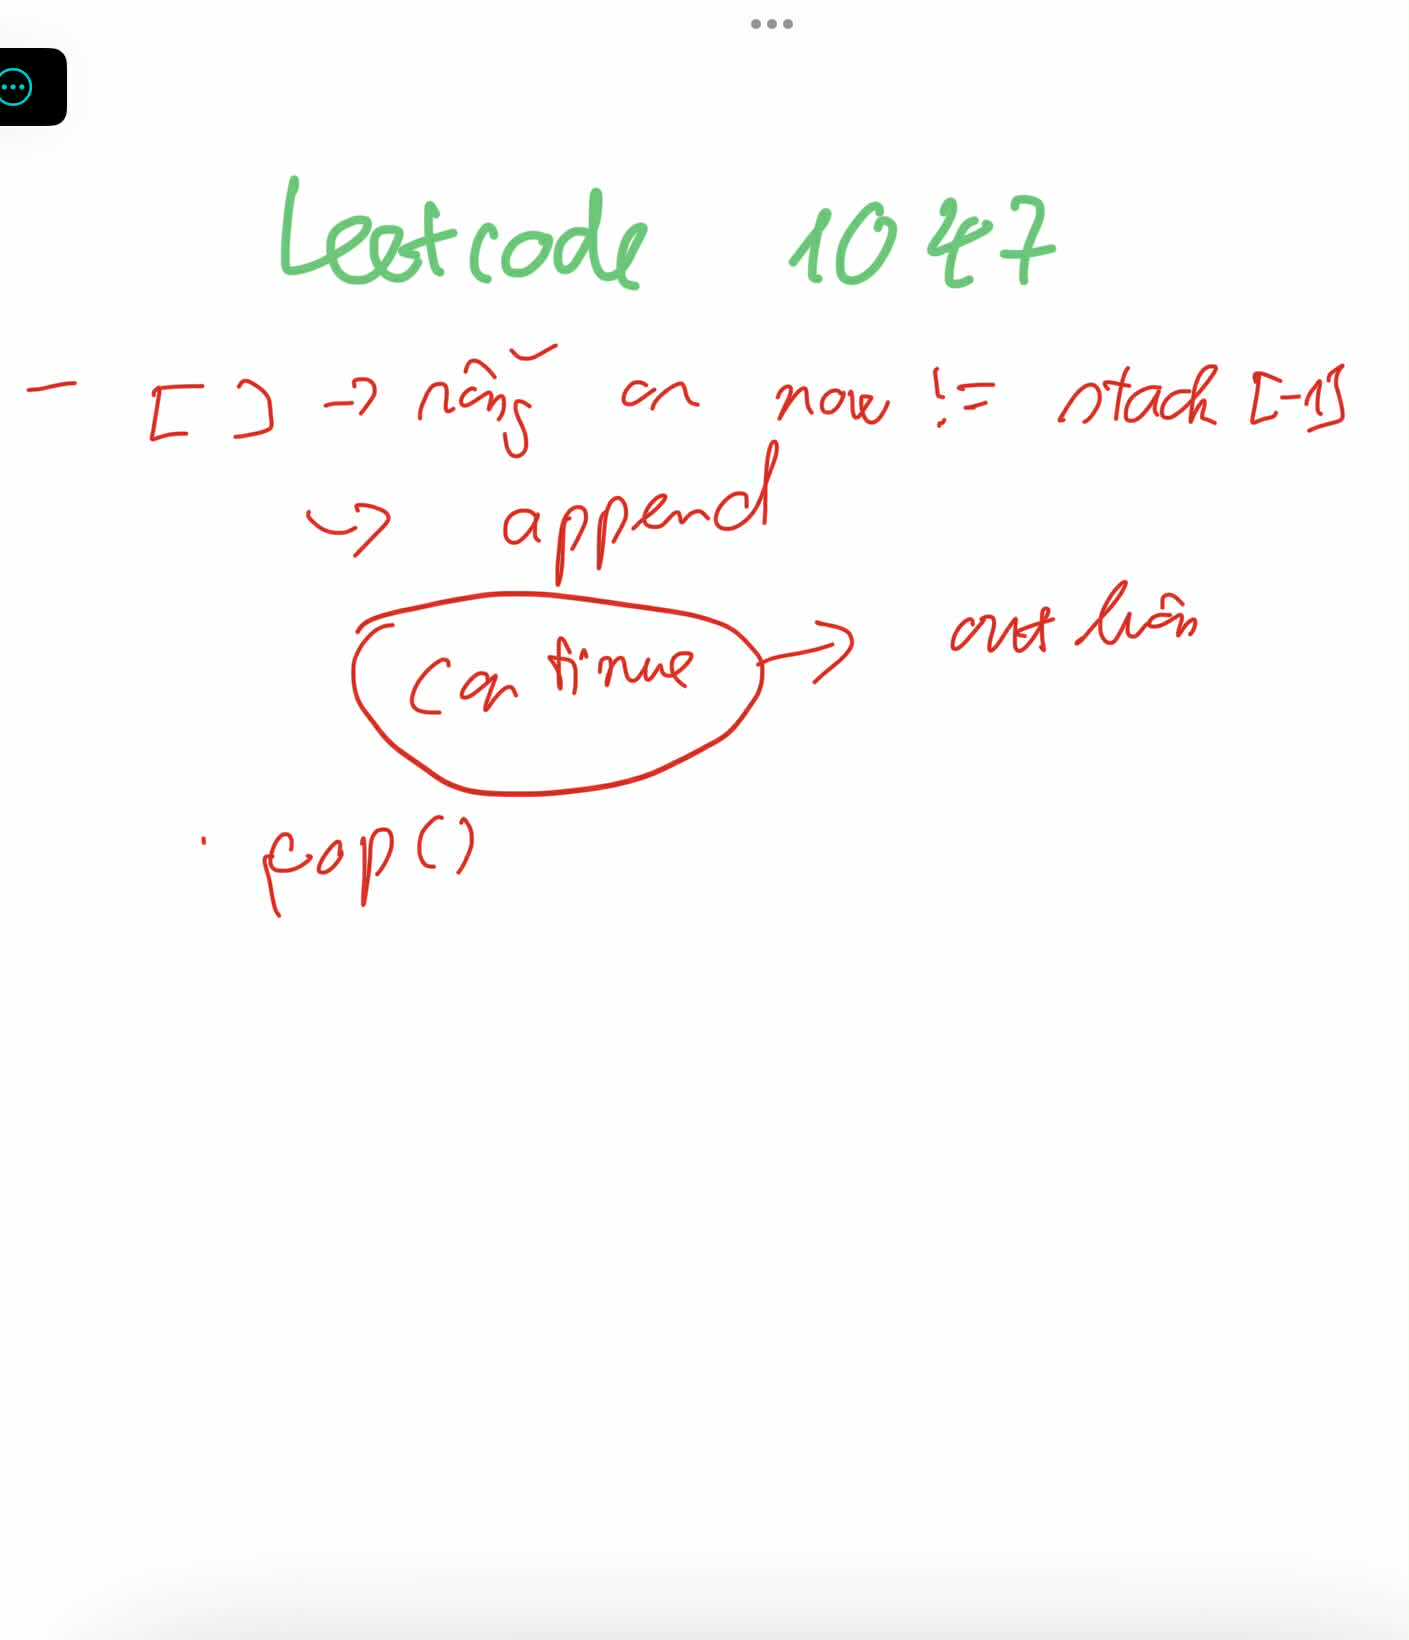 Leetcode 1047
- [ ] → rỗng or now != stack [-1]
↪ append
continue → out luôn
. pop()